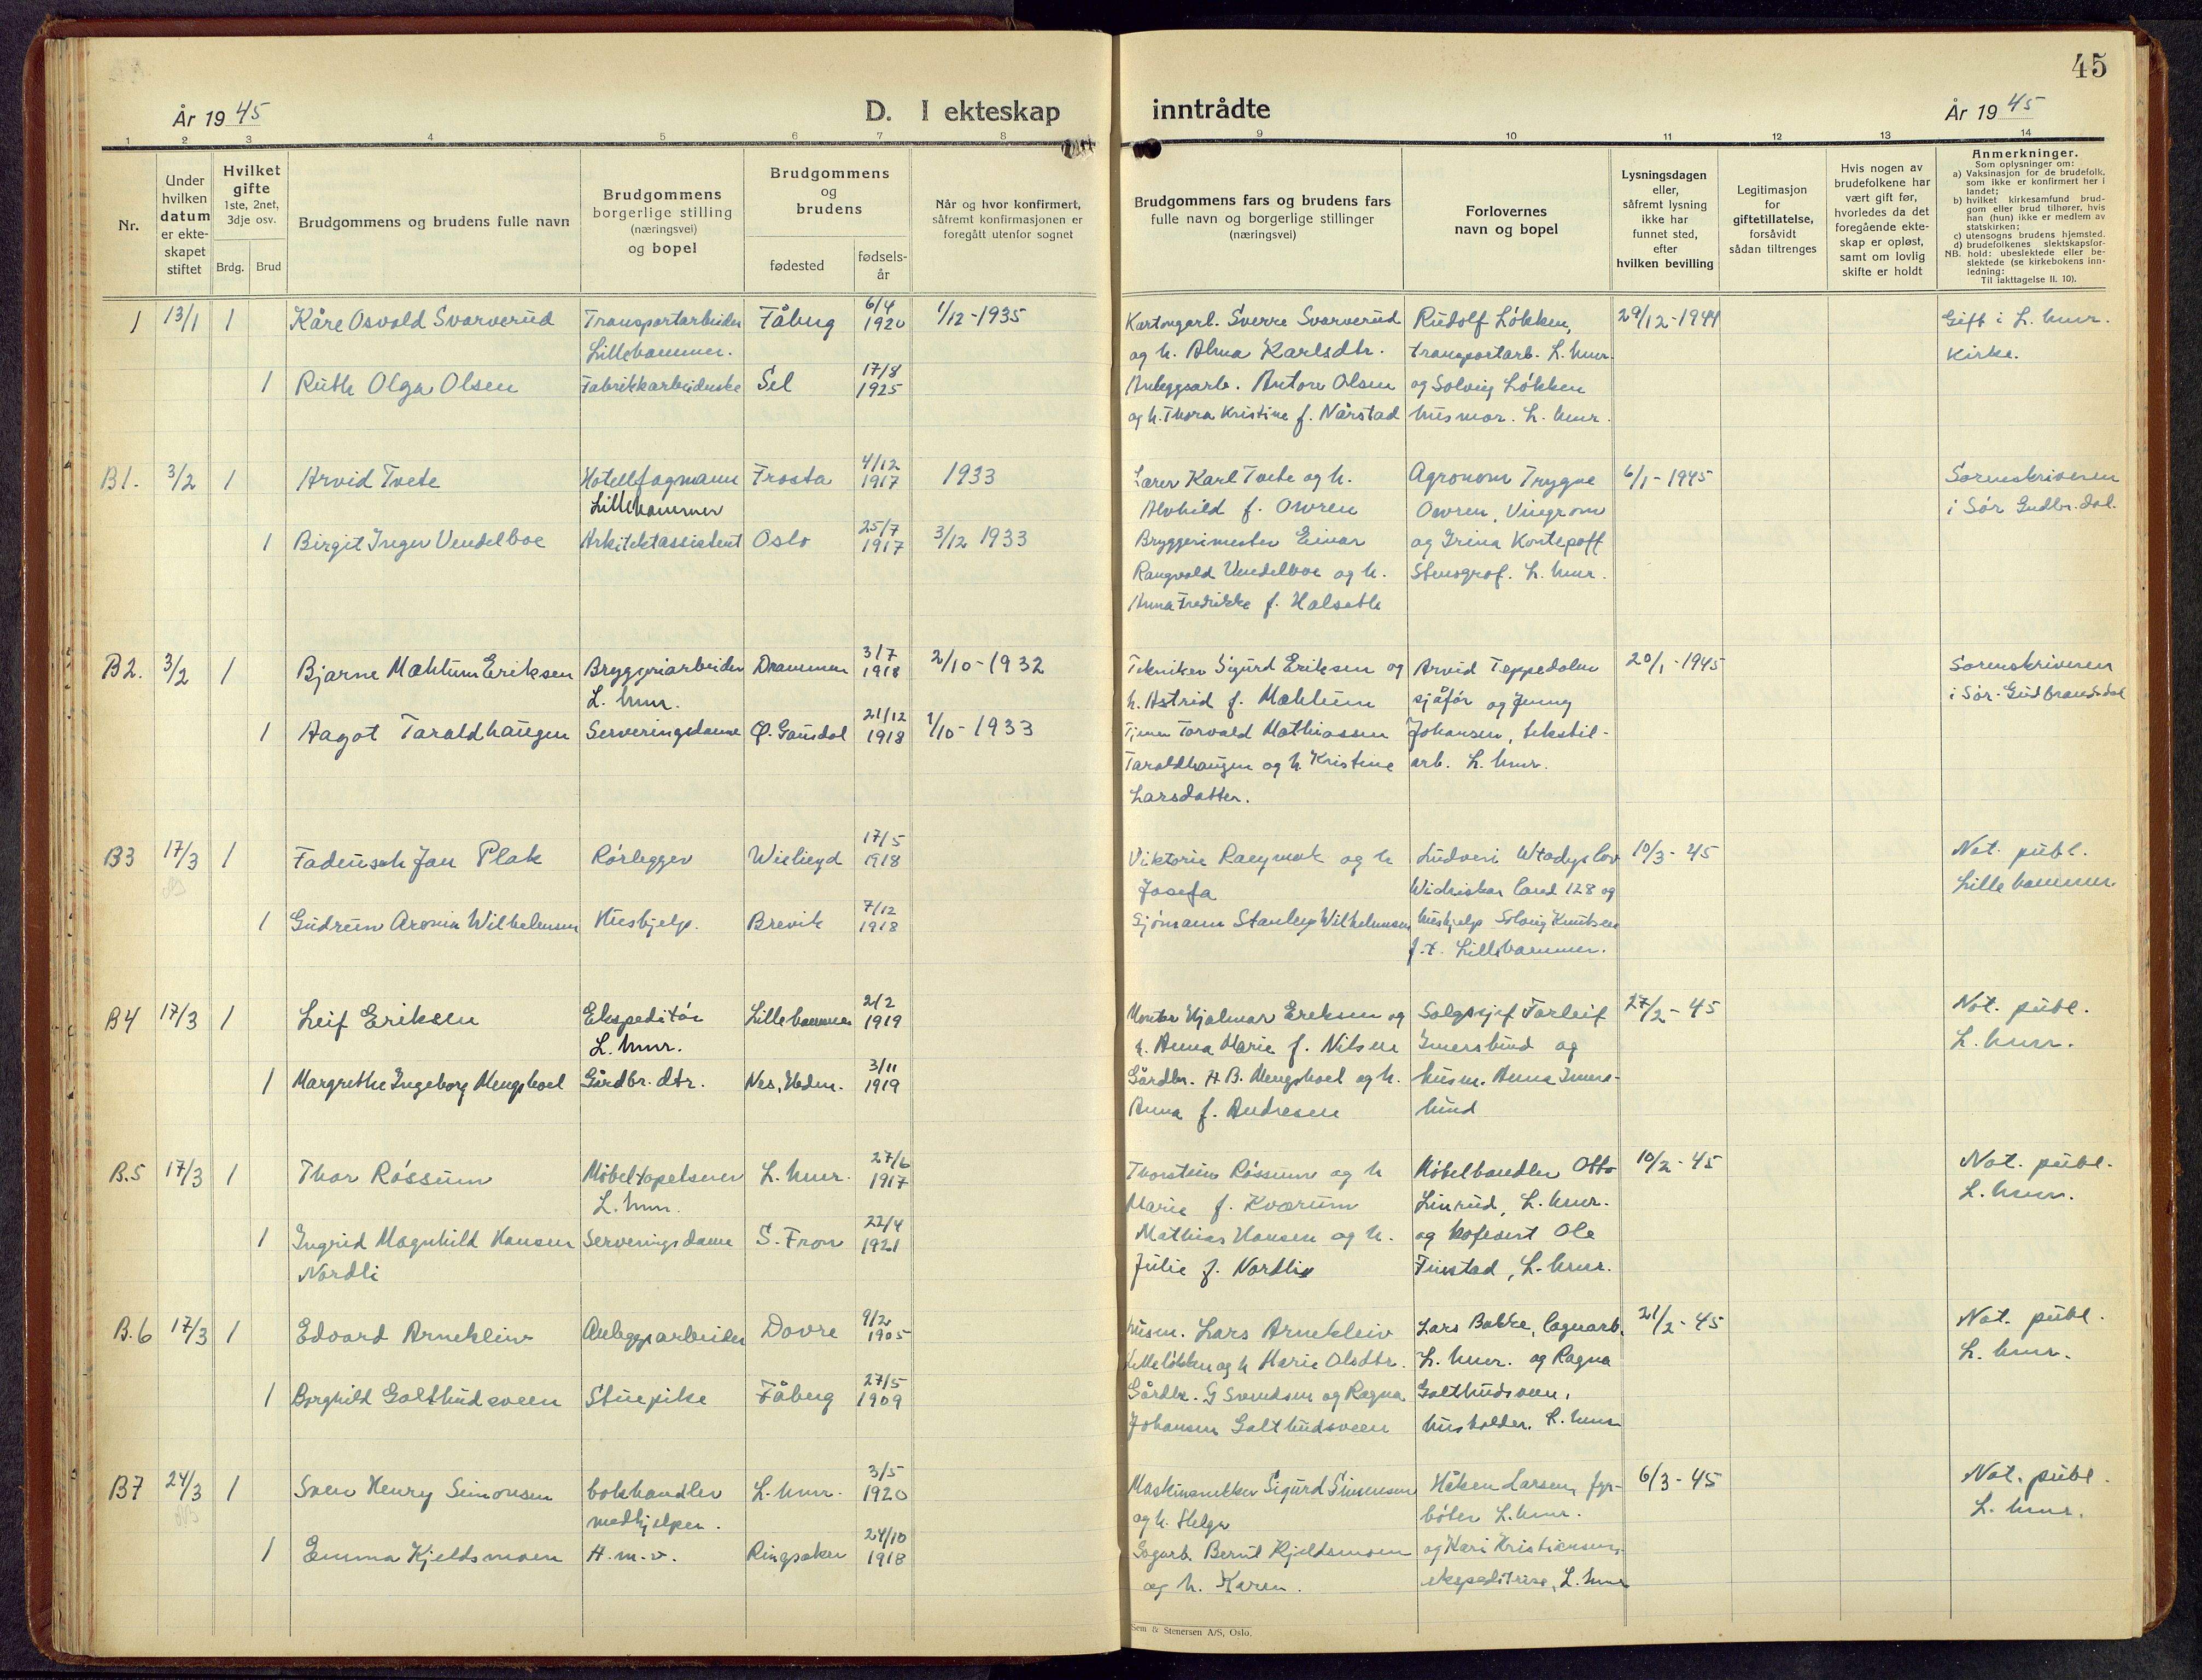 45
År 19 45
D. I ekteskap inntrådte
År 19 45
1 2 3 4 5 6 7 8 9 10 11 12 13 14
Nr.
Under hvilken datum er ekte-skapet stiftet
Hvilket gifte 1ste, 2net, 3dje osv.
Brdg. Brud
Brudgommens og brudens fulle navn
Brudgommens borgerlige stilling (næringsvei) og bopel
Brudgommens og brudens
fødested
fødsels-år
Når og hvor konfirmert, såfremt konfirmasjonen er foregått utenfor sognet
Brudgommens fars og brudens fars fulle navn og borgerlige stillinger (næringsvei)
Forlovernes navn og bopel
Lysningsdagen eller, såfremt lysning ikke har funnet sted, efter hvilken bevilling
Legitimasjon for giftetillatelse, forsåvidt sådan tiltrenges
Hvis nogen av brudefolkene har vært gift før, hvorledes da det foregående ekte-skap er opløst, samt om lovlig skifte er holdt
Anmerkninger.
Som oplysninger om:
a) Vaksinasjon for de brudefolk, som ikke er konfirmert her i landet;
b) hvilket kirkesamfund brud-gom eller brud tilhører, hvis han (hun) ikke er medlem av statskirken;
c) utensogns brudens hjemsted.
d) brudefolkenes slektskapsfor-hold: ubeslektede eller be-slektede (se kirkebokens inn-ledning:
NB.
Til iakttagelse II. 10).
1 13/1 1 Kåre Osvald Svarverud Transportarbeider Fåberg 6/4 1920 1/12-1935 Kartongarb. Sverre Svarverud Rudolf Løkken, 29/12-1944 Gift i L.hmr.
Lillehammer. og h. Alma Karlsdtr. transportarb. L.hmr. Kirke.
1 Ruth Olga Olsen Fabrikkarbeiderske Sel 17/8 1925 Anleggsarb. Anton Olsen og Solveig Løkken
og h. Thora Kristine f. Nårstad husmor. L.hmr.
B1. 3/2 1 Arvid Tvete Hotellfagmann Frosta 4/12 1917 1933 Lærer Karl Tvete og h. Agronom Trygve 6/1-1945 Sorenskriveren
Lillehammer Alvhild f. Owren Owren, Vingrom i Sør Gudbr.dal.
1 Birgit Inger Vendelboe Arkitektassistent Oslo 25/7 1917 3/12 1933 Bryggerimester Einar og Irina Kontepoff
Rangvald Vendelboe og h. Stenograf. L.hmr.
Anna Fredrikke f. Halseth
B2. 3/2 1 Bjarne Mæhlum Eriksen Bryggeriarbeider Drammen 3/7 1918 2/10-1932 Tekniker Sigurd Eriksen og Arvid Teppedalen 20/1-1945 Sorenskriveren
L.hmr. h. Astrid f. Mæhlum sjåfør og Jenny i Sør-Gudbrandsdal
1 Aagot Taraldhaugen Serveringsdame Ø. Gausdal 21/12 1918 1/10-1933 Torvald Mathiassen Johansen, tekstil-
Taraldhaugen og h. Kristine arb. L.hmr.
Larsdatter.
B3 17/3 1 Jan Plak Rørlegger 17/5 1918 Viktorie og h 10/3-45 Not. publ.
Josefa 128 og Lillehammer.
1 Gudrun Wilhelmsen Hushjelp. Brevik 7/12 1918 Sjømann Stanley Wilhelmsen hushjelp Solveig Knutsen
f.t. Lillehammer.
B4 17/3 1 Leif Eriksen Ekspeditør Lillehammer 2/2 1919 Montør Hjalmar Eriksen og Salgssjef Torleif 27/2-45 Not. publ.
L.hmr. h. Anna Marie f. Nilsen Imerslund og L.hmr.
1 Margrethe Ingeborg Mengshoel Gårdbr. dtr. Nes, Hedm. 3/11 1919 Gårdbr. H.B. Mengshoel og h. husm. Anna Imers-
Anna f. Andresen lund
B.5 17/3 1 Thor Røssum Møbeltapetserer L.hmr. 27/6 1917 Thorstein Røssum og h Møbelhandler Otto 10/2-45 Not. publ.
L.hmr. Marie f. Kvarum Linrud, L.hmr. L.hmr.
1 Ingrid Magnhild Hansen Serveringsdame S. Fron 22/4 1921 Mathias Hansen og h. og kafevert Ole
Nordli Julie f. Nordli Finstad, L.hmr.
B.6 17/3 1 Edvard Arnekleiv Anleggsarbeider Dovre 9/2 1905 husm. Lars Arnekleiv Lars Bakke, lagerarb. 21/2-45 Not. publ.
og h Marie Olsdtr. L.hmr. og Ragna L.hmr.
1 Borghild Galthudsveen Stuepike Fåberg 27/5 1909 Gårdbr. G Svendsen og Ragna Galthudsveen,
Johansen Galthudsveen husholder. L.hmr
B7 24/3 1 Svein Henry Simonsen bokhandler L.hmr. 3/5 1920 Maskinsnekker Sigurd Simonsen Håken Larsen, fyr- 6/3-45 Not. publ.
medhjelper. og h. Helga bøter L.hmr. L.hmr.
1 Emma Kjeldsmoen H.m.v. Ringsaker 24/10 1918 Sagarb. Bernt Kjeldsmoen og Kari Kristiansen,
og h. Karen. ekspeditrise, L.hmr
Sem & Stenersen A/S, Oslo.